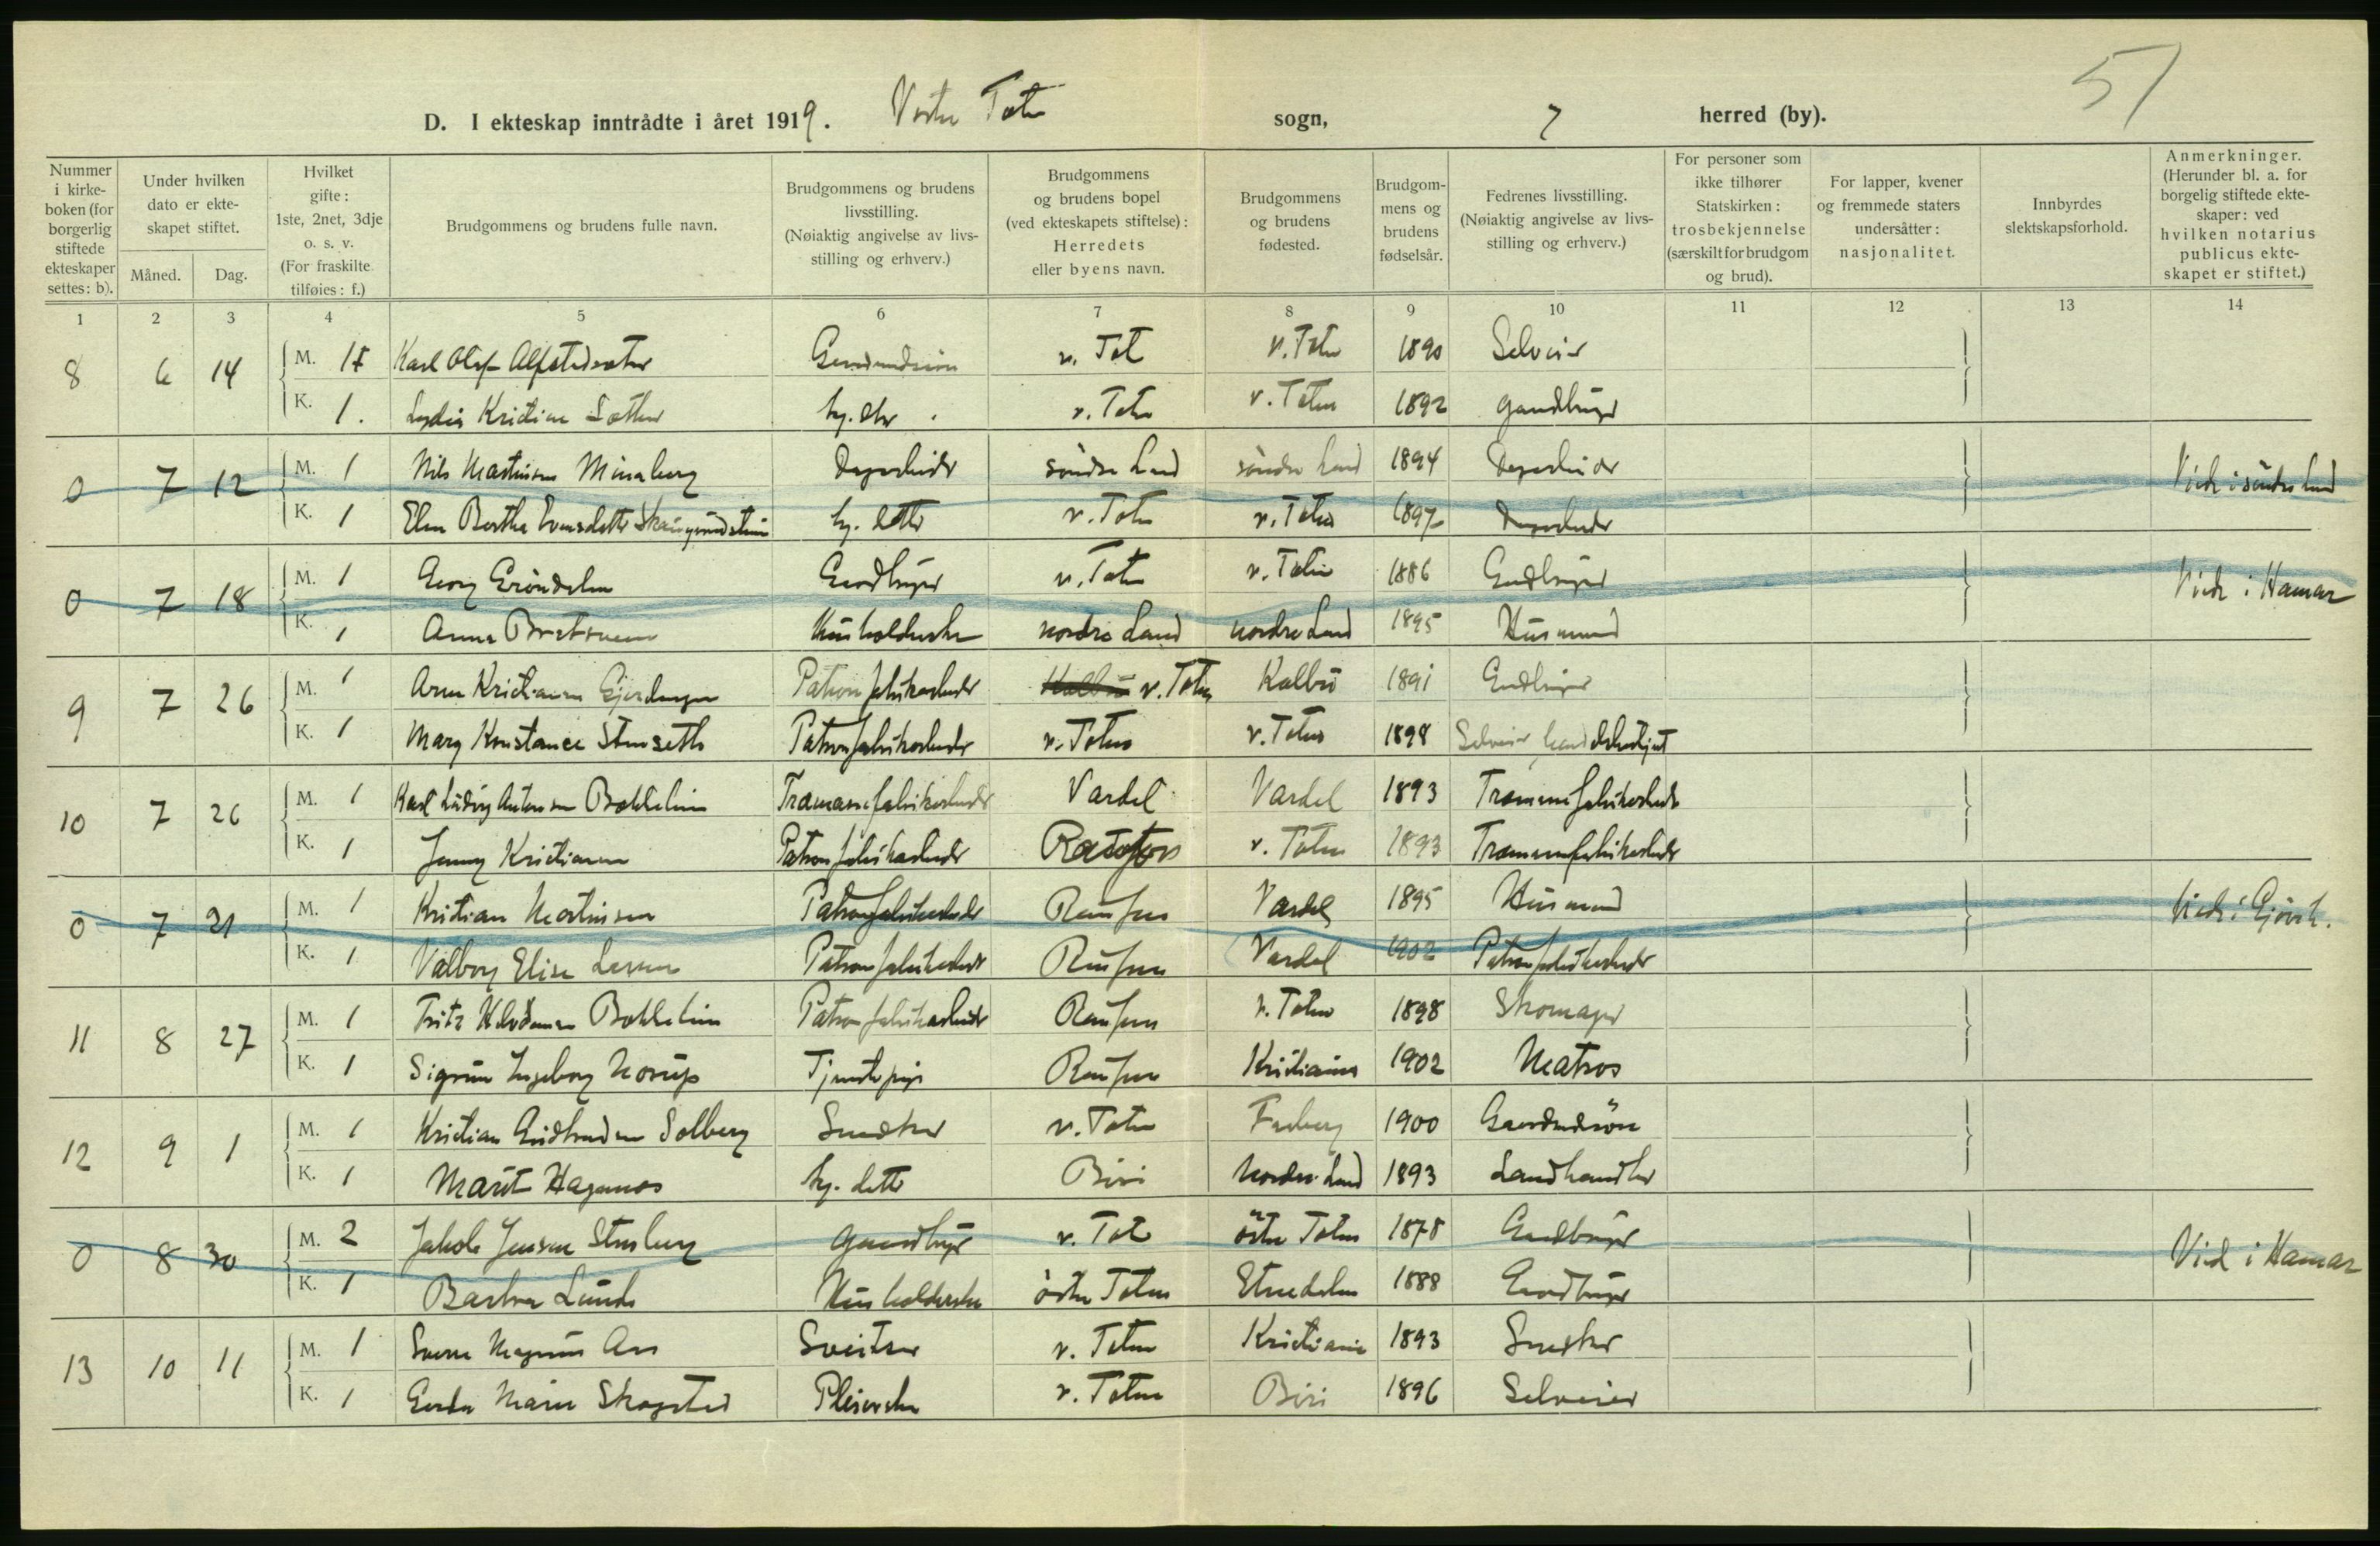 57
D. I ekteskap inntrådte i året 1919. Vestre Toten sogn, 7 herred (by).
Nummer i kirkeboken (for borgerlig stiftede ekteskaper settes: b).
Under hvilken dato er ekteskapet stiftet.
Måned.
Dag.
Hvilket gifte: 1ste, 2net, 3dje o. s. v. (For fraskilte tilføies: f.)
Brudgommens og brudens fulle navn.
Brudgommens og brudens livsstilling. (Nøiaktig angivelse av livsstilling og erhverv.)
Brudgommens og brudens bopel (ved ekteskapets stiftelse): Herredets eller byens navn.
Brudgommens og brudens fødested.
Brudgommens og brudens fødselsår.
Fedrenes livsstilling. (Nøiaktig angivelse av livsstilling og erhverv.)
For personer som ikke tilhører Statskirken: trosbekjennelse (særskilt for brudgom og brud).
For lapper, kvener og fremmede staters undersåtter: nasjonalitet.
Innbyrdes slektskapsforhold.
Anmerkninger. (Herunder bl. a. for borgelig stiftede ekteskaper: ved hvilken notarius publicus ekteskapet er stiftet.)
1 2 3 4 5 6 7 8 9 10 11 12 13 14
8 6 14 M. Karl Olaf v. Toten v. Toten 1890 Selveier
K. 1. Lydia Kristine v. Toten v. Toten 1892 Gaardbruger
0 7 12 M. 1 Nils Martinsen Minaberg Dagarbeider søndre Land søndre Land 1894 Dagarbeider Viede i søndre Land
K. 1 Elen Berthe hj. datter v. Toten v. Toten 1897 Dagarbeider
0 7 18 M. 1 Georg Grøndalen Gardbruger v. Toten v. Toten 1886 Gardbruger Viede i Hamar
K. 1 Anna Husholderske nordre Land nordre Land 1895 Husmand
9 7 26 M. 1 Arne Kristiansen Patronfabrikarbeider v. Toten Kolbu 1891 Gardbruger
K. 1 Mary Konstance Stenseth Patronfabrikarbeider v. Toten v. Toten 1898 Selveier
10 7 26 M. 1 Karl Ludvig Antonsen Bakkelien Trævarefabrikarbeider Vardal Vardal 1893 Trævarefabrikarbeider
K. 1 Jenny Kristiansen Patronfabrikarbeider Raufoss v. Toten 1893 Trævarefabrikarbeider
0 7 31 M. 1 Kristian Martinsen Patronfabrikarbeider Raufoss Vardal 1895 Husmand Viede i Gjøvik.
K. 1 Valborg Elise Larsen Patronfabrikarbeider Raufoss Vardal 1902 Patronfabrikarbeider
11 8 27 M. 1 Fritz Bakkelien Patronfabrikarbeider Raufoss v. Toten 1898 Skomager
K. 1 Sigrun Ingeborg Norup Tjenestepige Raufoss Kristiania 1902 Matros
12 9 1 M. 1 Kristian Gudbrandsen Solberg Snedker v. Toten Faaberg 1900
K. 1 Marit Hagenæs hj. datter Biri Nordre Land 1893 Landhandler
0 8 30 M. 2 Jakob Jensen Stensberg Gaardbruger v. Toten østre Toten 1878 Gardbruger Vied i Hamar
K. 1 Barbra Lunde Husholderske østre Toten Etnedalen 1888 Gardbruger
13 10 11 M. 1 Sverre Magnus Aas Sveitser v. Toten Kristiania 1893 Snedker
K. 1 Gerda Marie Skogstad Pleierske v. Toten Biri 1896 Selveier